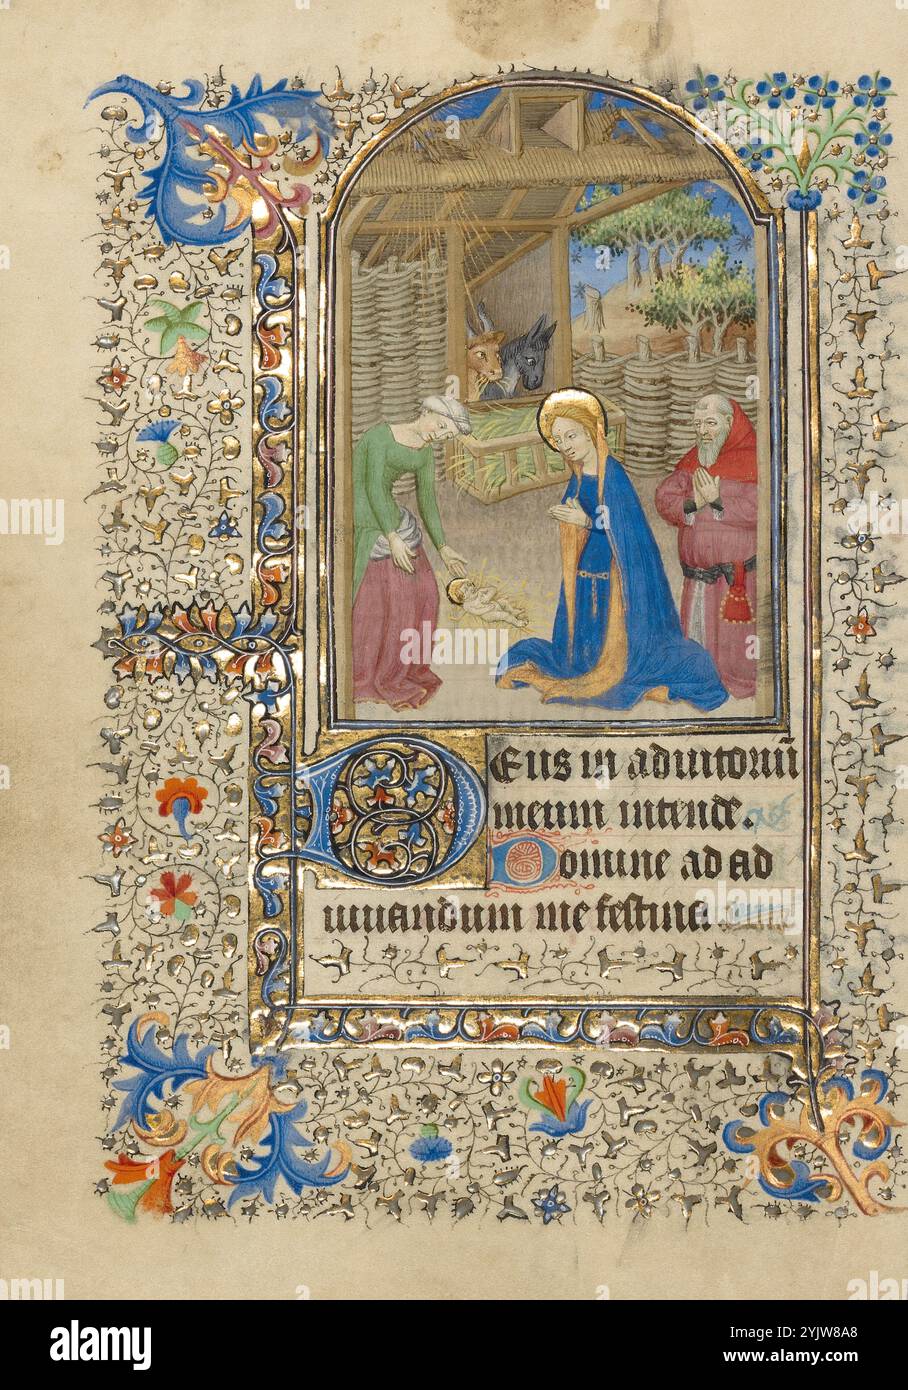 Deus in adiutoriū
meum intende.
Domine ad ad
iuuandum me festina.
alamy
alamy
Image ID: 2YJW8A8
www.alamy.com